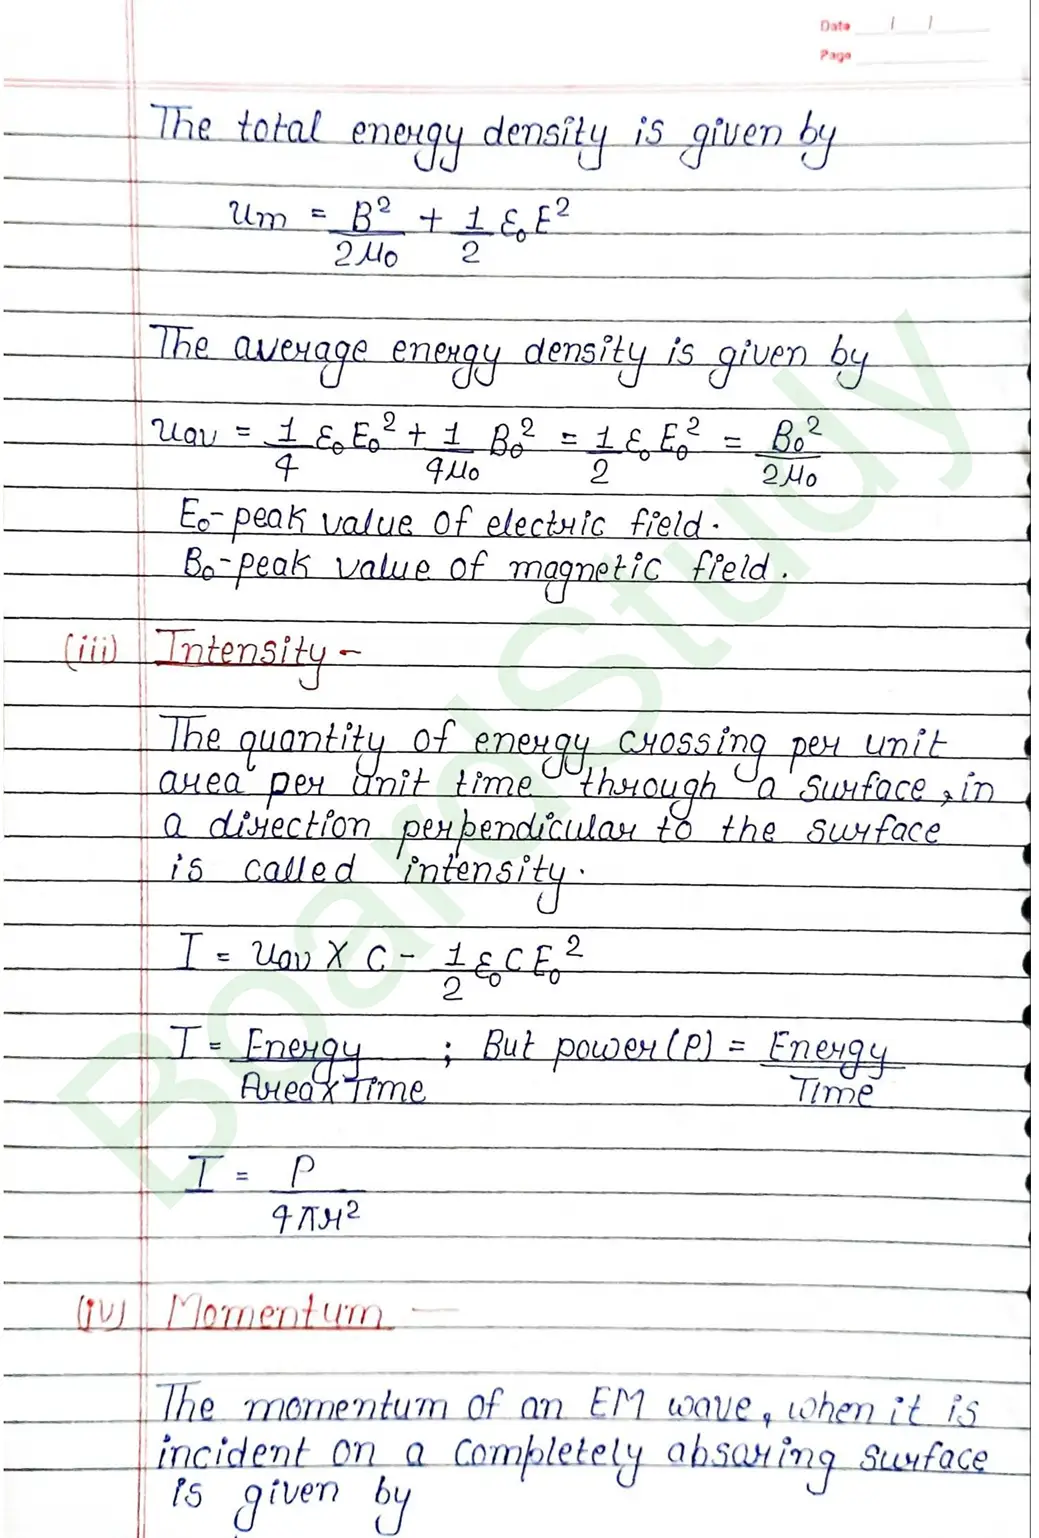 Date / /
Page
The total energy density is given by
um = B²/2μ₀ + 1/2 ε₀E²
The average energy density is given by
uav = 1/4 ε₀E₀² + 1/4μ₀ B₀² = 1/2 ε₀E₀² = B₀²/2μ₀
E₀-peak value of electric field.
B₀-peak value of magnetic field.
(iii) Intensity -
The quantity of energy crossing per unit
area per unit time through a surface, in
a direction perpendicular to the surface
is called intensity.
I = uav X C - 1/2 ε₀CE₀²
I = Energy/Area x Time ; But power(P) = Energy/Time
I = P/4πr²
(iv) Momentum —
The momentum of an EM wave, when it is
incident on a completely absoring surface
is given by
BoardStudy